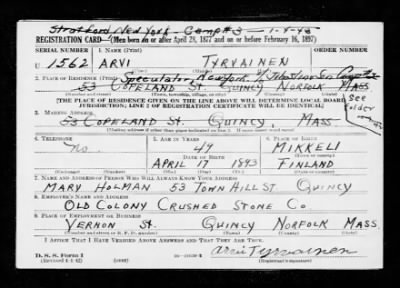 Stratford New York - Camp #3 - 1-8-43
REGISTRATION CARD—(Men born on or after April 28, 1877 and on or before February 16, 1897)
SERIAL NUMBER 1. NAME (Print)
U 1562 ARVI TYRVAINEN
2. PLACE OF RESIDENCE (Print) Speculator, New York
53 COPELAND ST. QUINCY NORFOLK MASS
[THE PLACE OF RESIDENCE GIVEN ON THE LINE ABOVE WILL DETERMINE LOCAL BOARD
JURISDICTION; LINE 2 OF REGISTRATION CERTIFICATE WILL BE IDENTICAL]
see
3. MAILING ADDRESS
53 COPELAND ST. QUINCY, MASS.
4. TELEPHONE 5. AGE IN YEARS 6. PLACE OF BIRTH
no. 49 MIKKELI
DATE OF BIRTH
APRIL 17 1893 FINLAND
7. NAME AND ADDRESS OF PERSON WHO WILL ALWAYS KNOW YOUR ADDRESS
MARY HOLMAN 53 TOWN HILL ST QUINCY
8. EMPLOYER'S NAME AND ADDRESS
OLD COLONY CRUSHED STONE CO
9. PLACE OF EMPLOYMENT OR BUSINESS
VERNON St. QUINCY NORFOLK MASS.
I AFFIRM THAT I HAVE VERIFIED ABOVE ANSWERS AND THAT THEY ARE TRUE.
D. S. S. Form 1 Arvi Tyrvainen